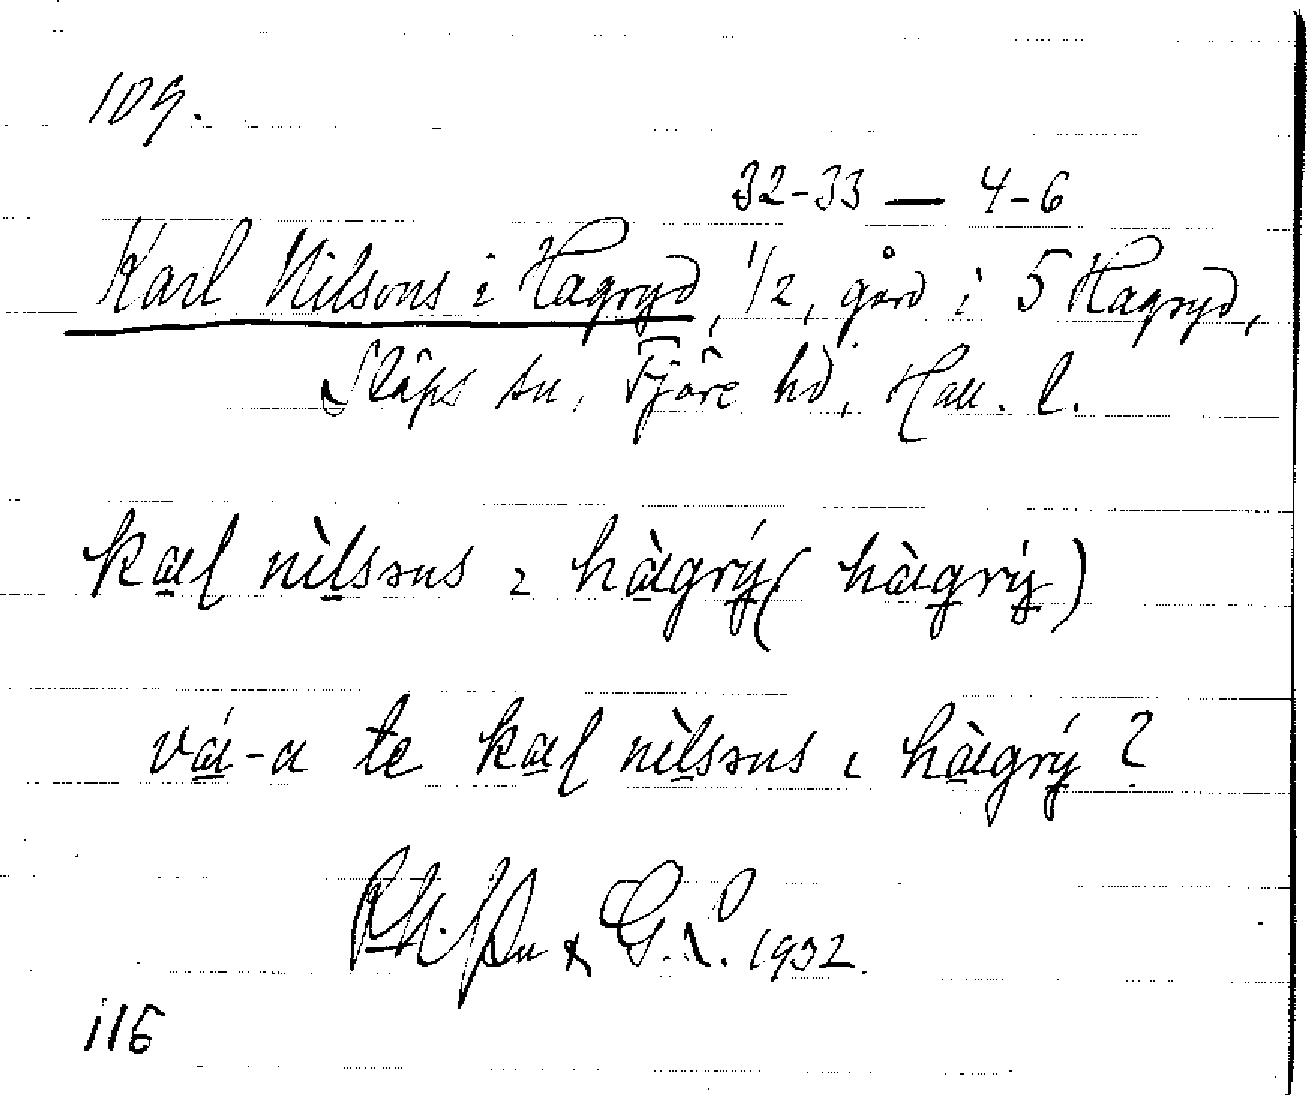 109.
32-33 — 4-6
Karl Nilsons i Hagryd, 1/2, gård i 5 Hagryd,
Släps sn, Fjäre hd, Hall. l.
kal nìlsəns ɩ hàgrý (hàgrý)
vá-a te kal nìlsəns ɩ hàgrý?
& G.L. 1932.
116